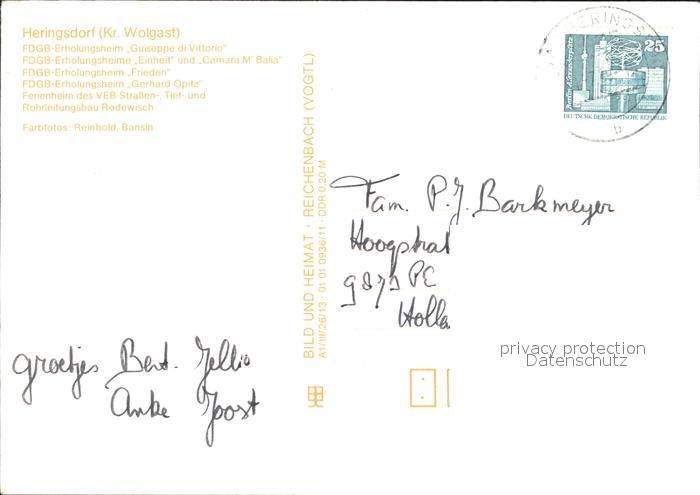 Heringsdorf (Kr. Wolgast)
FDGB-Erholungsheim „Guiseppe di Vittorio"
FDGB-Erholungsheime „Einheit" und „Camara M' Balia"
FDGB-Erholungsheim „Frieden"
FDGB-Erholungsheim „Gerhard Opitz"
Ferienheim des VEB Straßen-, Tief- und
Rohrleitungsbau Rodewisch
Farbfotos: Reinhold, Bansin
BILD UND HEIMAT · REICHENBACH (VOGTL)
A1/III/26/13 · 01 01 0936/11 · DDR 0,20 M
HERINGS
b
25
Berlin, Alexanderplatz
DEUTSCHE DEMOKRATISCHE REPUBLIK
Fam. P.J. Barkmeyer
Hoogstrat
PE
Holla
groetjes Bert. Jellie
Anke Joost
privacy protection
Datenschutz